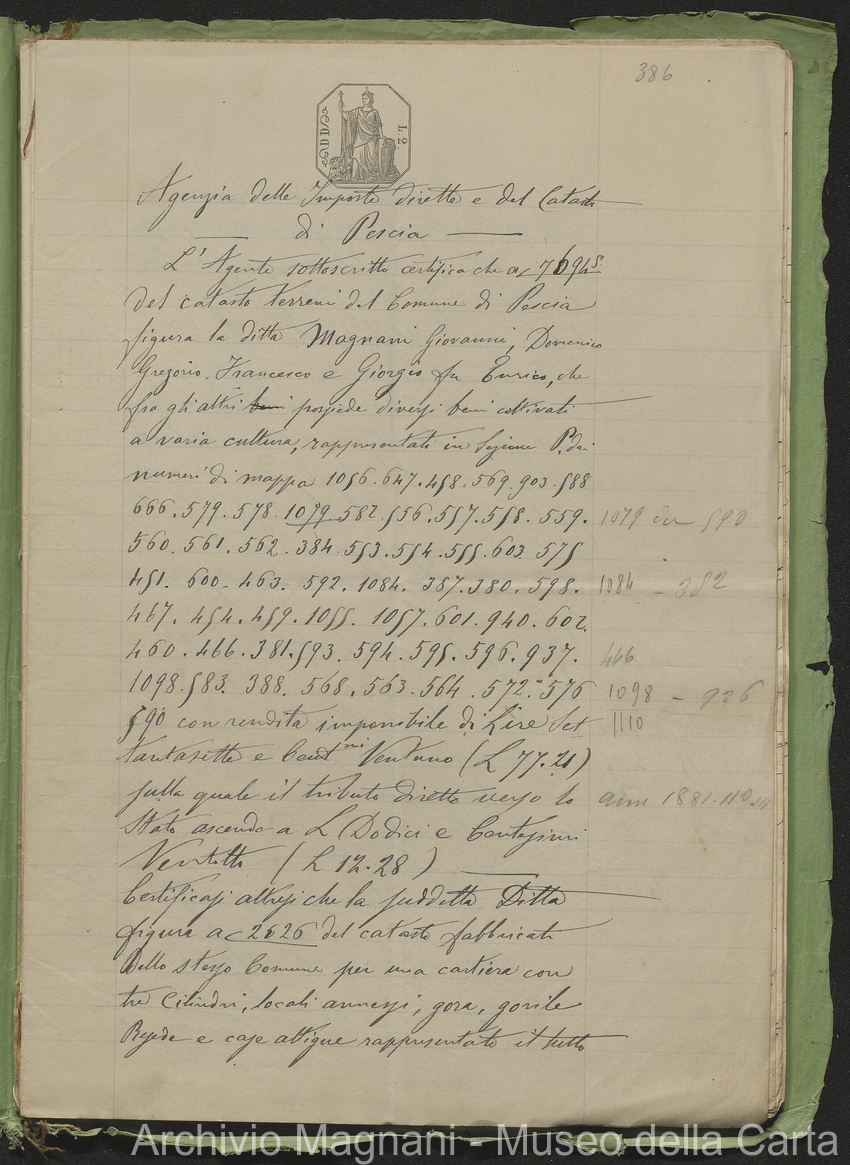 386
L. 2.
Agenzia delle Imposte dirette e del Catasto
di Pescia
L'Agente sottoscritto certifica che a c 7694
del catasto terreni del Comune di Pescia
figura la ditta Magnani Giovanni, Domenico
Gregorio, Francesco e Giorgio fu Enrico, che
fra gli altri beni possiede diversi beni coltivati
a varia cultura, rappresentati in Sezione P. dai
numeri di mappa 1056. 647. 458. 569. 903. 588
666. 579. 578. 1079. 582. 556. 557. 558. 559. 1079 590
560. 561. 562. 384. 553. 554. 555. 603. 575
451. 600. 463. 592. 1084. 387. 380. 598. 1084 - 382
467. 454. 459. 1055. 1057. 601. 940. 602.
460. 466. 381. 593. 594. 595. 596. 937. 466
1098. 583. 388. 568. 563. 564. 572. 576 1098 - 936
590 con rendita imponibile di Lire Set 1110
tantasette e Cent.mi Ventuno (L 77.21)
sulla quale il tributo diretto verso lo 1881.
Stato ascende a L Dodici e Centesimi
Ventotto (L 12.28)
Certificasi altresì che la suddetta Ditta
figura a c 2626 del catasto fabbricati
dello stesso Comune per una cartiera con
tre Cilindri, locali annessi, gora, gorile
e case attigue rappresentato il tutto
Archivio Magnani - Museo della Carta